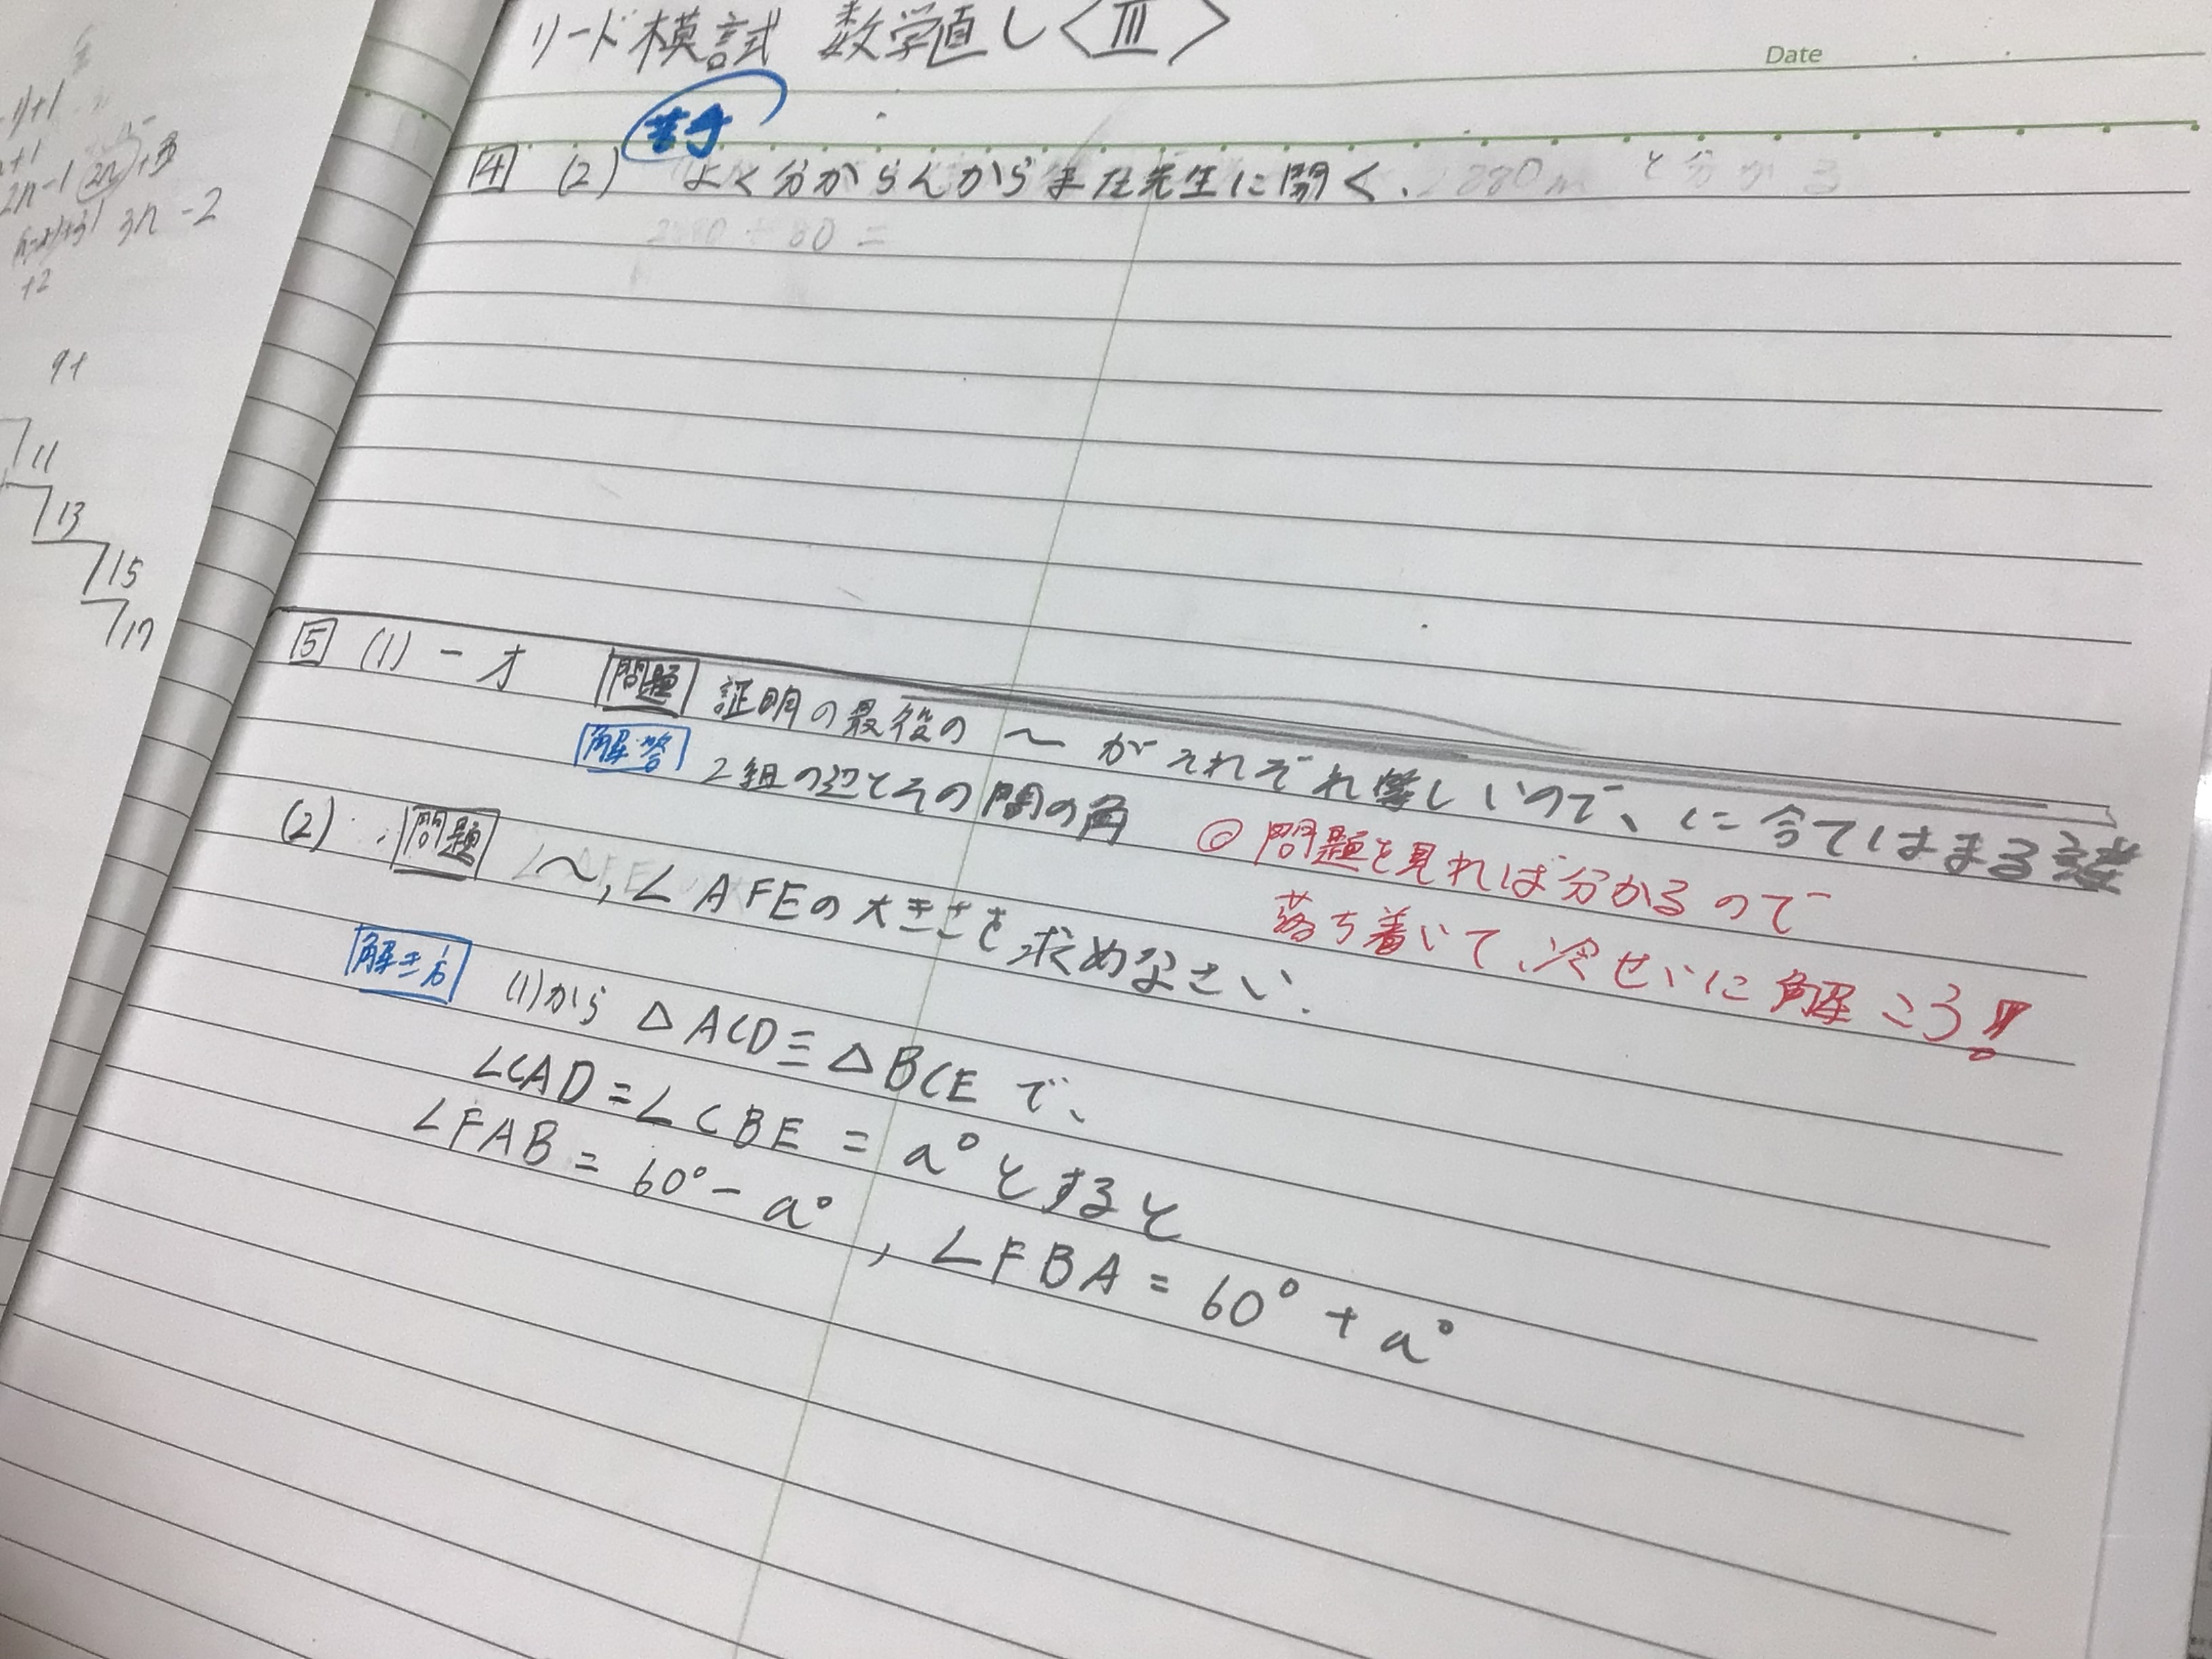 リード模試 数学直し〈Ⅲ〉
Date
苦手
4 (2) よく分からんからまた先生に聞く.
5 (1) - オ 問題 証明の最後の 〜 がそれぞれ等しいので、に当てはまる
解答 2組の辺とその間の角
◎問題を見れば分かるので
落ち着いて、冷せいに解こう!!
(2) 問題 〜, ∠AFEの大きさを求めなさい.
解き方 (1)から △ACD≡△BCE で、
∠CAD=∠CBE = a°とすると
∠FAB = 60°- a° , ∠FBA = 60° + a°
2n-1 2n +3
3n -2
+2
9+
11
13
15
17